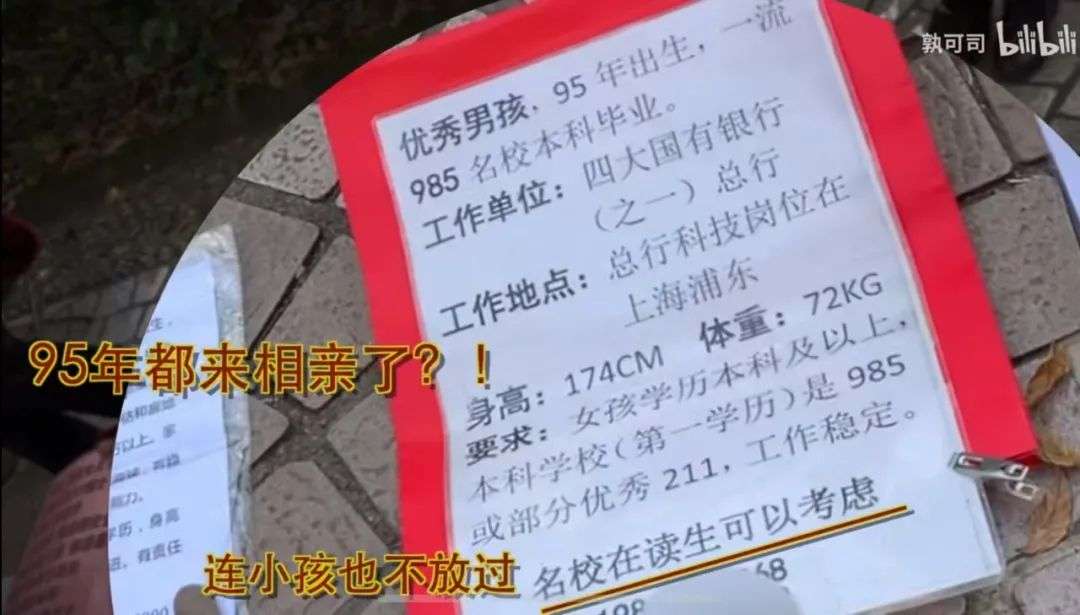 孰可司 bilibili
优秀男孩，95 年出生，一流
985 名校本科毕业。
工作单位：四大国有银行
（之一）总行
工作地点：总行科技岗位在
上海浦东
身高：174CM 体重：72KG
要求：女孩学历本科及以上，
本科学校(第一学历)是 985
或部分优秀 211，工作稳定。
名校在读生可以考虑
95年都来相亲了？！
连小孩也不放过
以上，
能力。
学历，身高
有责任